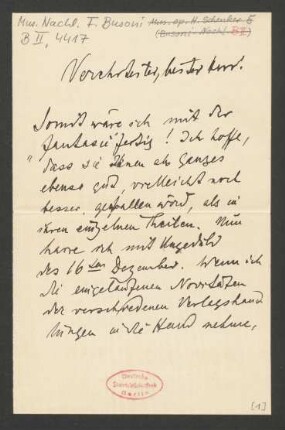 Mus. Nachl. F. Busoni
B II, 4417
Mus. ep. H. Schenker 5
(Busoni-Nachl. B II)
Verehrtester, bester Herr.
Somit wäre ich mit der
Fantasie fertig! Ich hoffe,
dass sie Ihnen als Ganzes
ebenso gut, vielleicht noch
besser gefallen wird, als in
ihren einzelnen Theilen. Nun
harre ich mit Ungeduld
des 16ten Dezember. Wenn ich
die eingelaufenen Novitäten
der verschiedenen Verlagshand
lungen in die Hand nehme,
Deutsche
Staatsbibliothek
Berlin
[1]